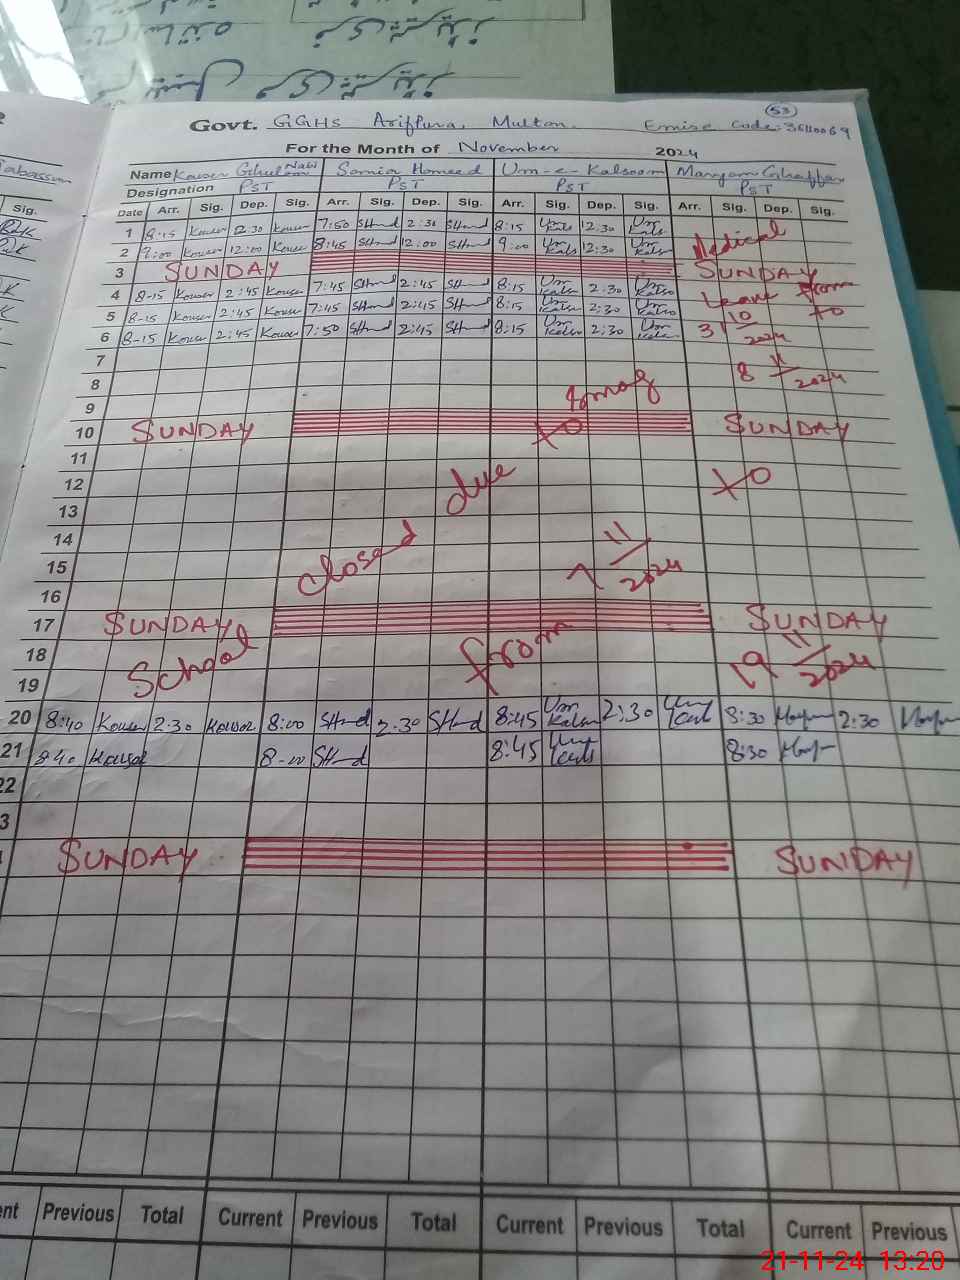 53
Govt. GGHS Ariffura, Multan. Emise Code: 36110069
For the Month of November 2024
Name Kouser Ghulam Samia Hameed Um-e-Kalsoom Maryam Ghaffar
Designation PST PST PST PST
Date Arr. Sig. Dep. Sig. Arr. Sig. Dep. Sig. Arr. Sig. Dep. Sig. Arr. Sig. Dep. Sig.
1 8-15 Kouser 12:30 Kouser 7:50 SHmd 2:30 SHmd 8:15 Um Kals 12:30 Um Kals Medical
2 9:00 Kouser 12:00 Kouser 8:45 SHmd 12:00 SHmd 9:00 Um Kals 12:30 Um Kals
3 SUNDAY SUNDAY
4 8-15 Kouser 2:45 Kouser 7:45 SHmd 2:45 SHmd 8:15 Um Kalso 2:30 Um Kalso Leave from
5 8-15 Kouser 2:45 Kouser 7:45 SHmd 2:45 SHmd 8:15 Um Kalso 2:30 Um Kalso to
6 8-15 Kouser 2:45 Kouser 7:50 SHmd 2:45 SHmd 8:15 Um Kalso 2:30 Um Kalso 31 10/2024
7
8 8 11/2024
9
10 SUNDAY SUNDAY
11
12
13
14
15
16
17 SUNDAY SUNDAY
18
19
School closed due to smog
from 7 11/2024 to 19 11/2024
20 8:40 Kouser 2:30 Kouser 8:00 SHmd 2:30 SHmd 8:45 Um Kalsm 2:30 8:30 2:30
21 8:40 Kouser 8-00 SHmd 8:45 8:30
22
3
SUNDAY SUNDAY
Previous Total Current Previous Total Current Previous Total Current Previous
21-11-24 13:20